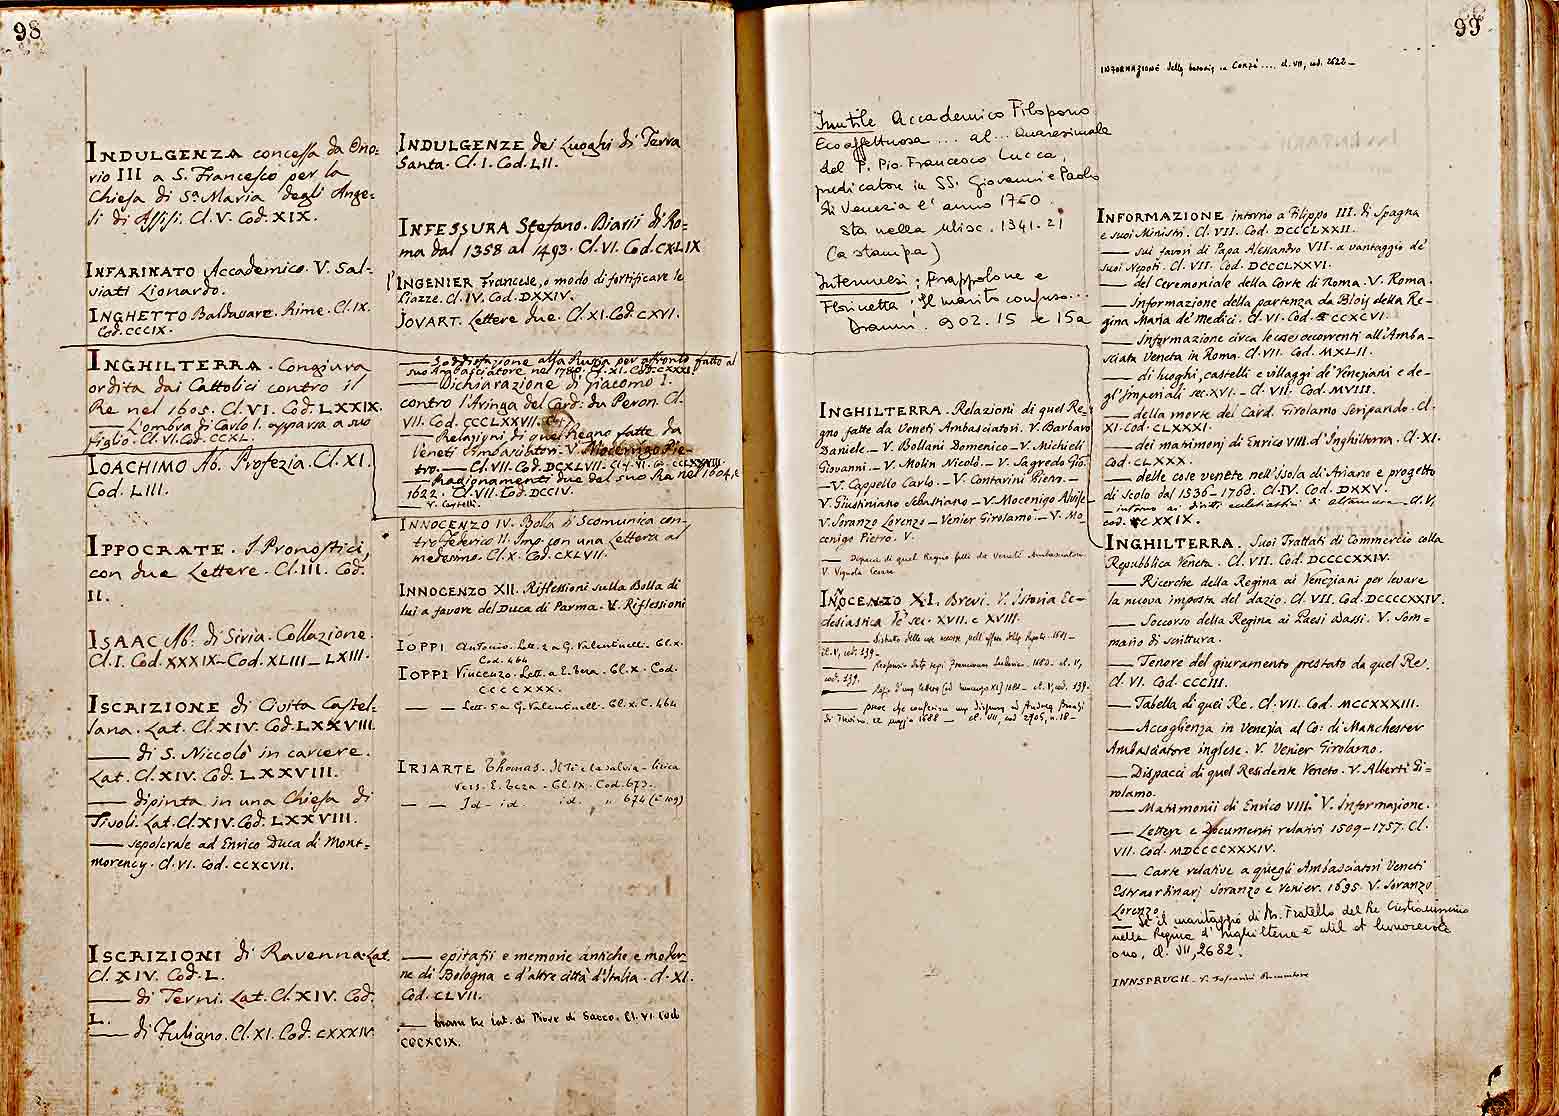 98
INDULGENZA concessa da Ono=
rio III a S. Francesco per la
Chiesa di Sª Maria degli Ange=
li di Assisi. Cl. V. Cod. XIX.
INFARINATO Accademico. V. Sal=
viati Lionardo.
INGHETTO Baldassare. Rime. Cl. IX.
Cod. CCCIX.
INGHILTERRA. Congiura
ordita dai Cattolici contro il
Re nel 1605. Cl. VI. Cod. LXXIX.
— L'ombra di Carlo I. apparsa a suo
figlio. Cl. VI. Cod. CCXL.
IOACHIMO Ab. Profezia. Cl. XI.
Cod. LIII.
IPPOCRATE. I Pronostici,
con due Lettere. Cl. III. Cod.
II.
ISAAC Ab. di Siria. Collazione.
Cl. I. Cod. XXXIX – Cod. XLIII – LXIII.
ISCRIZIONE di Civita Castel=
lana. Lat. Cl. XIV. Cod. LXXVIII.
— di S. Niccolò in carcere.
Lat. Cl. XIV. Cod. LXXVIII.
— dipinta in una Chiesa di
Tivoli. Lat. Cl. XIV. Cod. LXXVIII.
— sepolcrale ad Enrico Duca di Mont=
morency. Cl. VI. Cod. CCXCVII.
ISCRIZIONI di Ravenna. Lat.
Cl. XIV. Cod. L.
— di Terni. Lat. Cl. XIV. Cod.
L.
— di Fuligno. Cl. XI. Cod. CXXXIV.
INDULGENZE dei Luoghi di Terra
Santa. Cl. I. Cod. LII.
INFESSURA Stefano. Diarii di Ro=
ma dal 1358 al 1493. Cl. VI. Cod. CXLIX
l'INGENIER Francese, o modo di fortificare le
Piazze. Cl. IV. Cod. DXXIV.
JOVART. Lettere due. Cl. XI. Cod. CXVI.
— Soddisfazione alla Russia per affronto fatto al
suo Ambasciatore nel 1708. Cl. XI. Cod. CXXXI
— Dichiarazione di Giacomo I.
contro l'Aringa del Card. du Peron. Cl.
VII. Cod. CCCLXXVII.
— Relazioni di quel Regno fatte da
Veneti Ambasciatori. V. Mocenigo Pie=
tro. — Cl. VII. Cod. DCXLVII. Cl. VI. Co. CCLXXVIII.
— Ragionamenti due del suo Re nel 1604, e
1622. Cl. VII. Cod. DCCIV.
— V. Castelli.
INNOCENZO IV. Bolla di Scomunica con=
tro Federico II. Imp. con una Lettera al
medesimo. Cl. X. Cod. CXLVII.
INNOCENZO XII. Riflessioni sulla Bolla di
lui a favore del Duca di Parma. V. Riflessioni
IOPPI Antonio. Lett. 2 a G. Valentinelli. Cl. X.
Cod. 464
IOPPI Vincenzo. Lett. a E. Teza. Cl. X. Cod.
CCCCXXX.
— — Lett. 5 a G. Valentinelli. Cl. X. C. 464
IRIARTE Thomas. Il Tè e la salvia – lirica
vers. E. Teza – Cl. IX. Cod. 673.
— — Id – id. id. " 674 (c. 109)
— epitafii e memorie antiche e moder=
ne di Bologna e d'altre città d'Italia. Cl. XI.
Cod. CLVII.
— tre lat. di Piove di Sacco. Cl. VI Cod.
CCCXCIX.
99
Inutile Accademico Filopono
Eco affettuosa ... al ... Quaresimale
del P. Pio. Francesco Lucca,
predicatore in SS. Giovanni e Paolo
di Venezia l'anno 1760.
Sta nella Misc. 1341. 21
(a stampa)
Intermessi; Frappolone e
Florinetta, Il marito confuso...
Dramm. 902. 15 e 15a
INGHILTERRA. Relazioni di quel Re=
gno fatte da Veneti Ambasciatori. V. Barbaro
Daniele. – V. Bollani Domenico – V. Michieli
Giovanni. – V. Molin Nicolò. – V. Sagredo Gio.
– V. Cappello Carlo. – V. Contarini Pietro. –
V. Giustiniano Sebastiano – V. Mocenigo Alvise
V. Soranzo Lorenzo – Venier Girolamo – V. Mo=
cenigo Pietro. V.
— Dispacci di quel Regno fatti da Veneti Ambasciatori
V. Vignola Cesare
INNOCENZO XI. Brevi. V. Istoria Ec=
clesiastica de' sec. XVII. e XVIII.
cl. V, cod. 139 –
cod. 139.
INFORMAZIONE della ... in Corfù .... cl. VII, cod. 2622 –
INFORMAZIONE intorno a Filippo III. di Spagna
e suoi Ministri. Cl. VII. Cod. DCCCLXXII.
— sui favori di Papa Alessandro VII. a vantaggio de'
suoi Nepoti. Cl. VII. Cod. DCCCLXXVI.
— del Ceremoniale della Corte di Roma. V. Roma.
— Informazione della partenza da Blois della Re=
gina Maria de' Medici. Cl. VI. Cod. CCXCVI.
— Informazione circa le cose occorrenti all'Amba=
sciata Veneta in Roma. Cl. VII. Cod. MXLII.
— di luoghi, castelli e villaggi de' Veneziani e de=
gl'Imperiali sec. XVI. – Cl. VII. Cod. MVIII.
— della morte del Card. Girolamo Seripando. Cl.
XI. Cod. CLXXXI.
— dei matrimonj di Enrico VIII. d'Inghilterra. Cl. XI.
Cod. CLXXX.
— delle cose venete nell'Isola di Ariano e progetto
di scolo dal 1536 – 1760. Cl. IV. Cod. DXXV.
— intorno ai diritti ecclesiastici di – cl. V,
cod. CXXIX.
INGHILTERRA. Suoi Trattati di Commercio colla
Repubblica Veneta. Cl. VII. Cod. DCCCCXXIV.
— Ricerche della Regina ai Veneziani per levare
la nuova imposta del dazio. Cl. VII. Cod. DCCCCXXIV.
— Soccorso della Regina ai Paesi Bassi. V. Som=
mario di scrittura.
— Tenore del giuramento prestato da quel Re.
Cl. VI. Cod. CCCIII.
— Tabella di quei Re. Cl. VII. Cod. MCCXXXIII.
— Accoglienza in Venezia al Co: di Manchester
Ambasciatore inglese. V. Venier Girolamo.
— Dispacci di quel Residente Veneto. V. Alberti Gi=
rolamo.
— Matrimonii di Enrico VIII. V. Informazione.
— Lettere e Documenti relativi 1509–1757. Cl.
VII. Cod. MDCCCCXXXIV.
— Carte relative a quegli Ambasciatori Veneti
Estraordinarj Soranzo e Venier. 1695. V. Soranzo
Lorenzo.
— Se il maritaggio di Mr. Fratello del Re Cristianissimo
nella Regina d'Inghilterra è util et honorevole
o no, cl. VII, 2682.
INNSPRUCH – V.